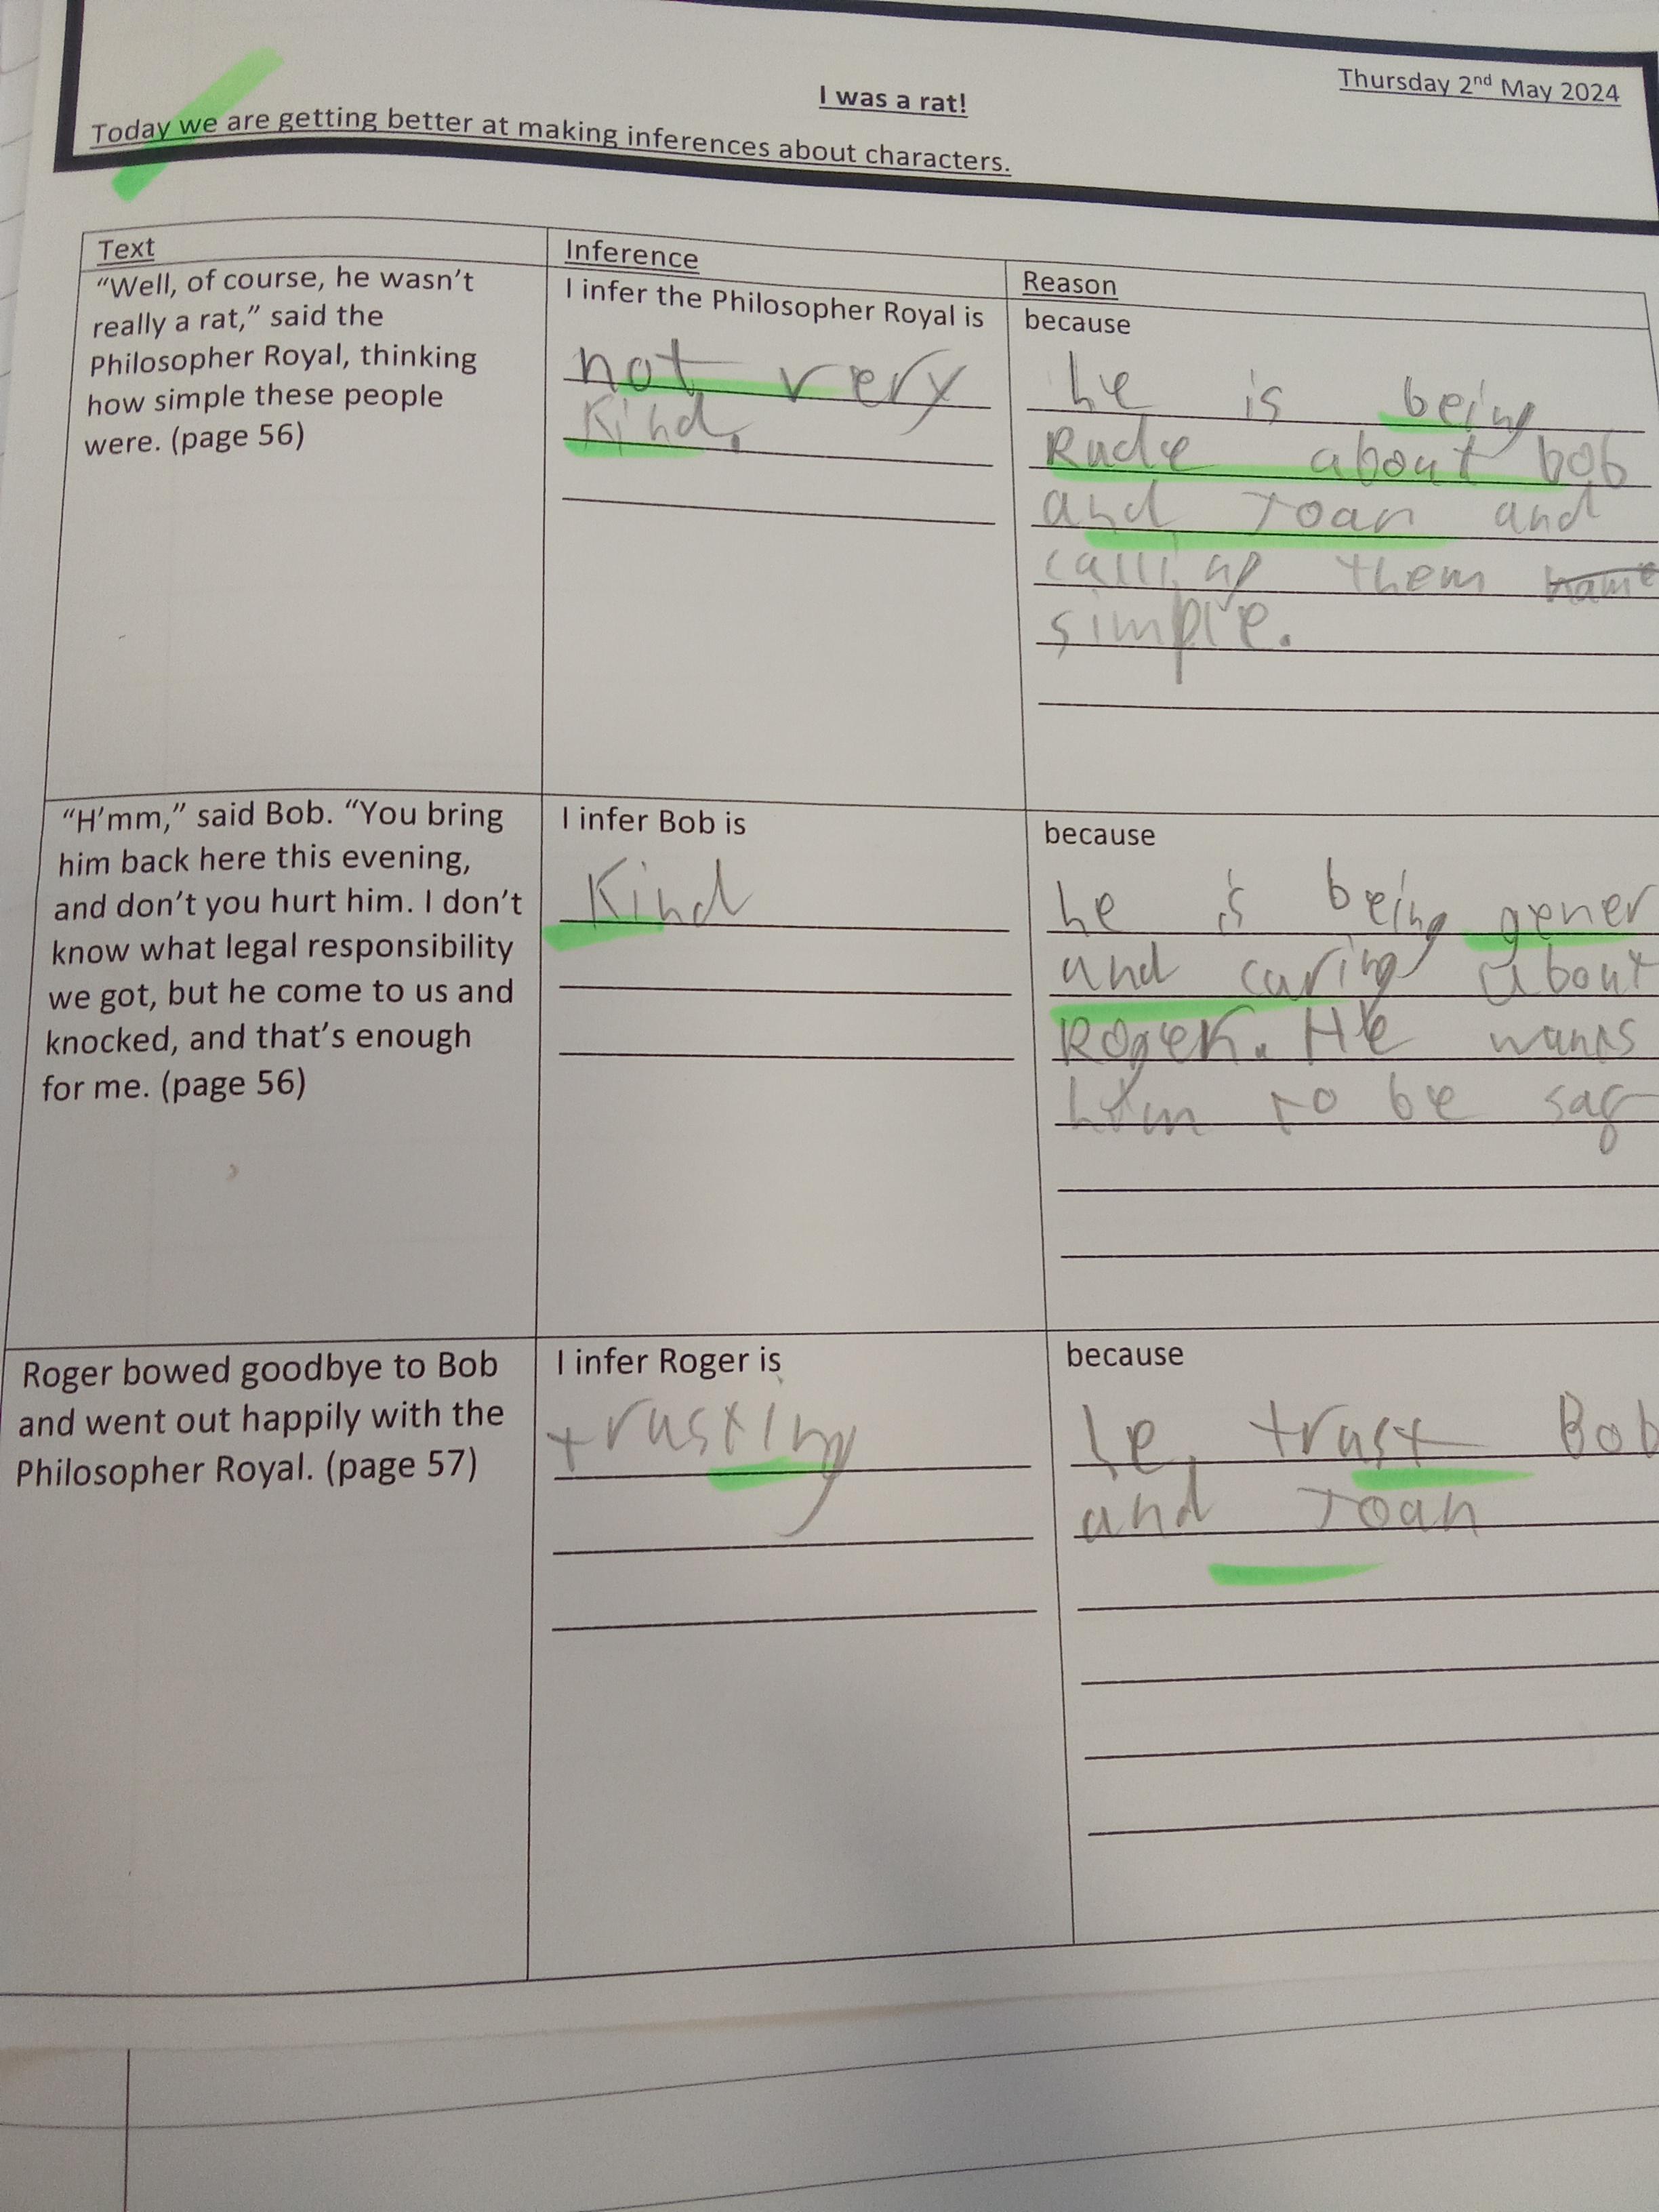 Thursday 2nd May 2024
I was a rat!
Today we are getting better at making inferences about characters.
Text
"Well, of course, he wasn't
really a rat," said the
Philosopher Royal, thinking
how simple these people
were. (page 56)
Inference
I infer the Philosopher Royal is
not very
Kind.
Reason
because
he is being
Rude about bob
and Joan and
calling them name
simple.
"H'mm," said Bob. "You bring
him back here this evening,
and don't you hurt him. I don't
know what legal responsibility
we got, but he come to us and
knocked, and that's enough
for me. (page 56)
I infer Bob is
Kind
because
he is being gener
and caring about
Roger. He wants
him to be saf
Roger bowed goodbye to Bob
and went out happily with the
Philosopher Royal. (page 57)
I infer Roger is
trusting
because
he trust Bob
and Joan